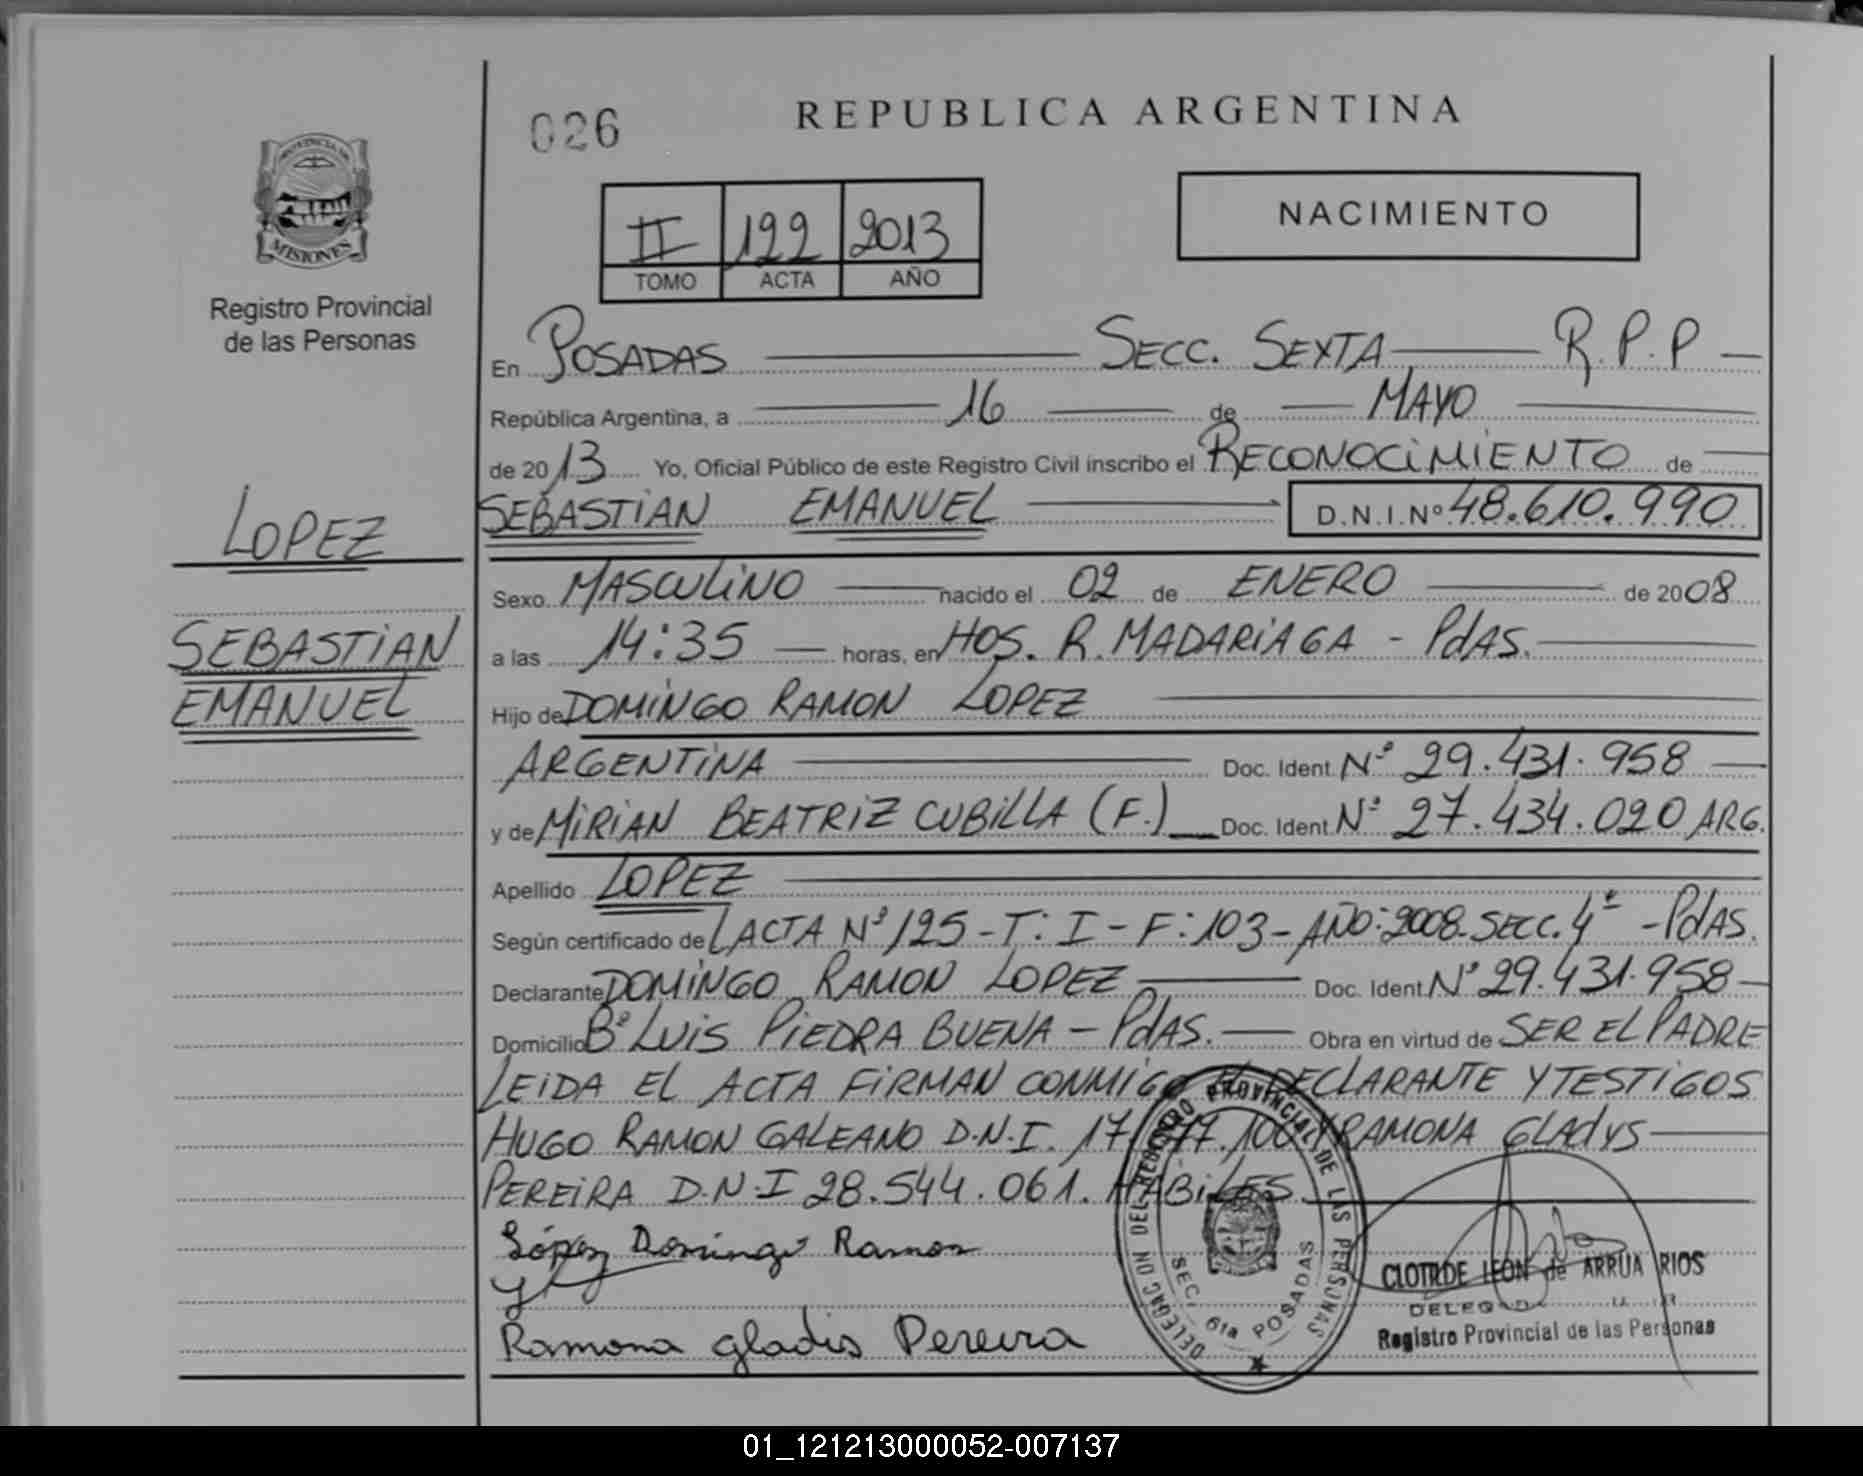 026
REPUBLICA ARGENTINA
PROVINCIA DE
MISIONES
Registro Provincial
de las Personas
II 122 2013
TOMO ACTA AÑO
NACIMIENTO
En POSADAS SECC. SEXTA R.P.P
República Argentina, a 16 de MAYO
de 2013 Yo, Oficial Público de este Registro Civil inscribo el RECONOCIMIENTO de
SEBASTIAN EMANUEL D.N.I.Nº 48.610.990
LOPEZ
SEBASTIAN
EMANUEL
Sexo MASCULINO nacido el 02 de ENERO de 2008
a las 14:35 horas, en HOS. R. MADARIAGA - PdAS.
Hijo de DOMINGO RAMON LOPEZ
ARGENTINA Doc. Ident. Nº 29.431.958
y de MIRIAN BEATRIZ CUBILLA (F.) Doc. Ident. Nº 27.434.020 ARG.
Apellido LOPEZ
Según certificado de L ACTA Nº 125 - T: I - F: 103 - AÑO: 2008. SECC. 4ª - PdAS.
Declarante DOMINGO RAMON LOPEZ Doc. Ident. Nº 29.431.958
Domicilio Bº LUIS PIEDRA BUENA - PdAS. Obra en virtud de SER EL PADRE
LEIDA EL ACTA FIRMAN CONMIGO EL DECLARANTE Y TESTIGOS
HUGO RAMON GALEANO D.N.I. 17. Y RAMONA GLADYS
PEREIRA D.N.I 28.544.061. HABILES
López Domingo Ramon
Ramona gladis Pereira
DELEGACION DEL REGISTRO PROVINCIAL DE LAS PERSONAS
SEC. 6ta POSADAS
CLOTILDE LEON de ARRUA RIOS
Registro Provincial de las Personas
01_121213000052-007137